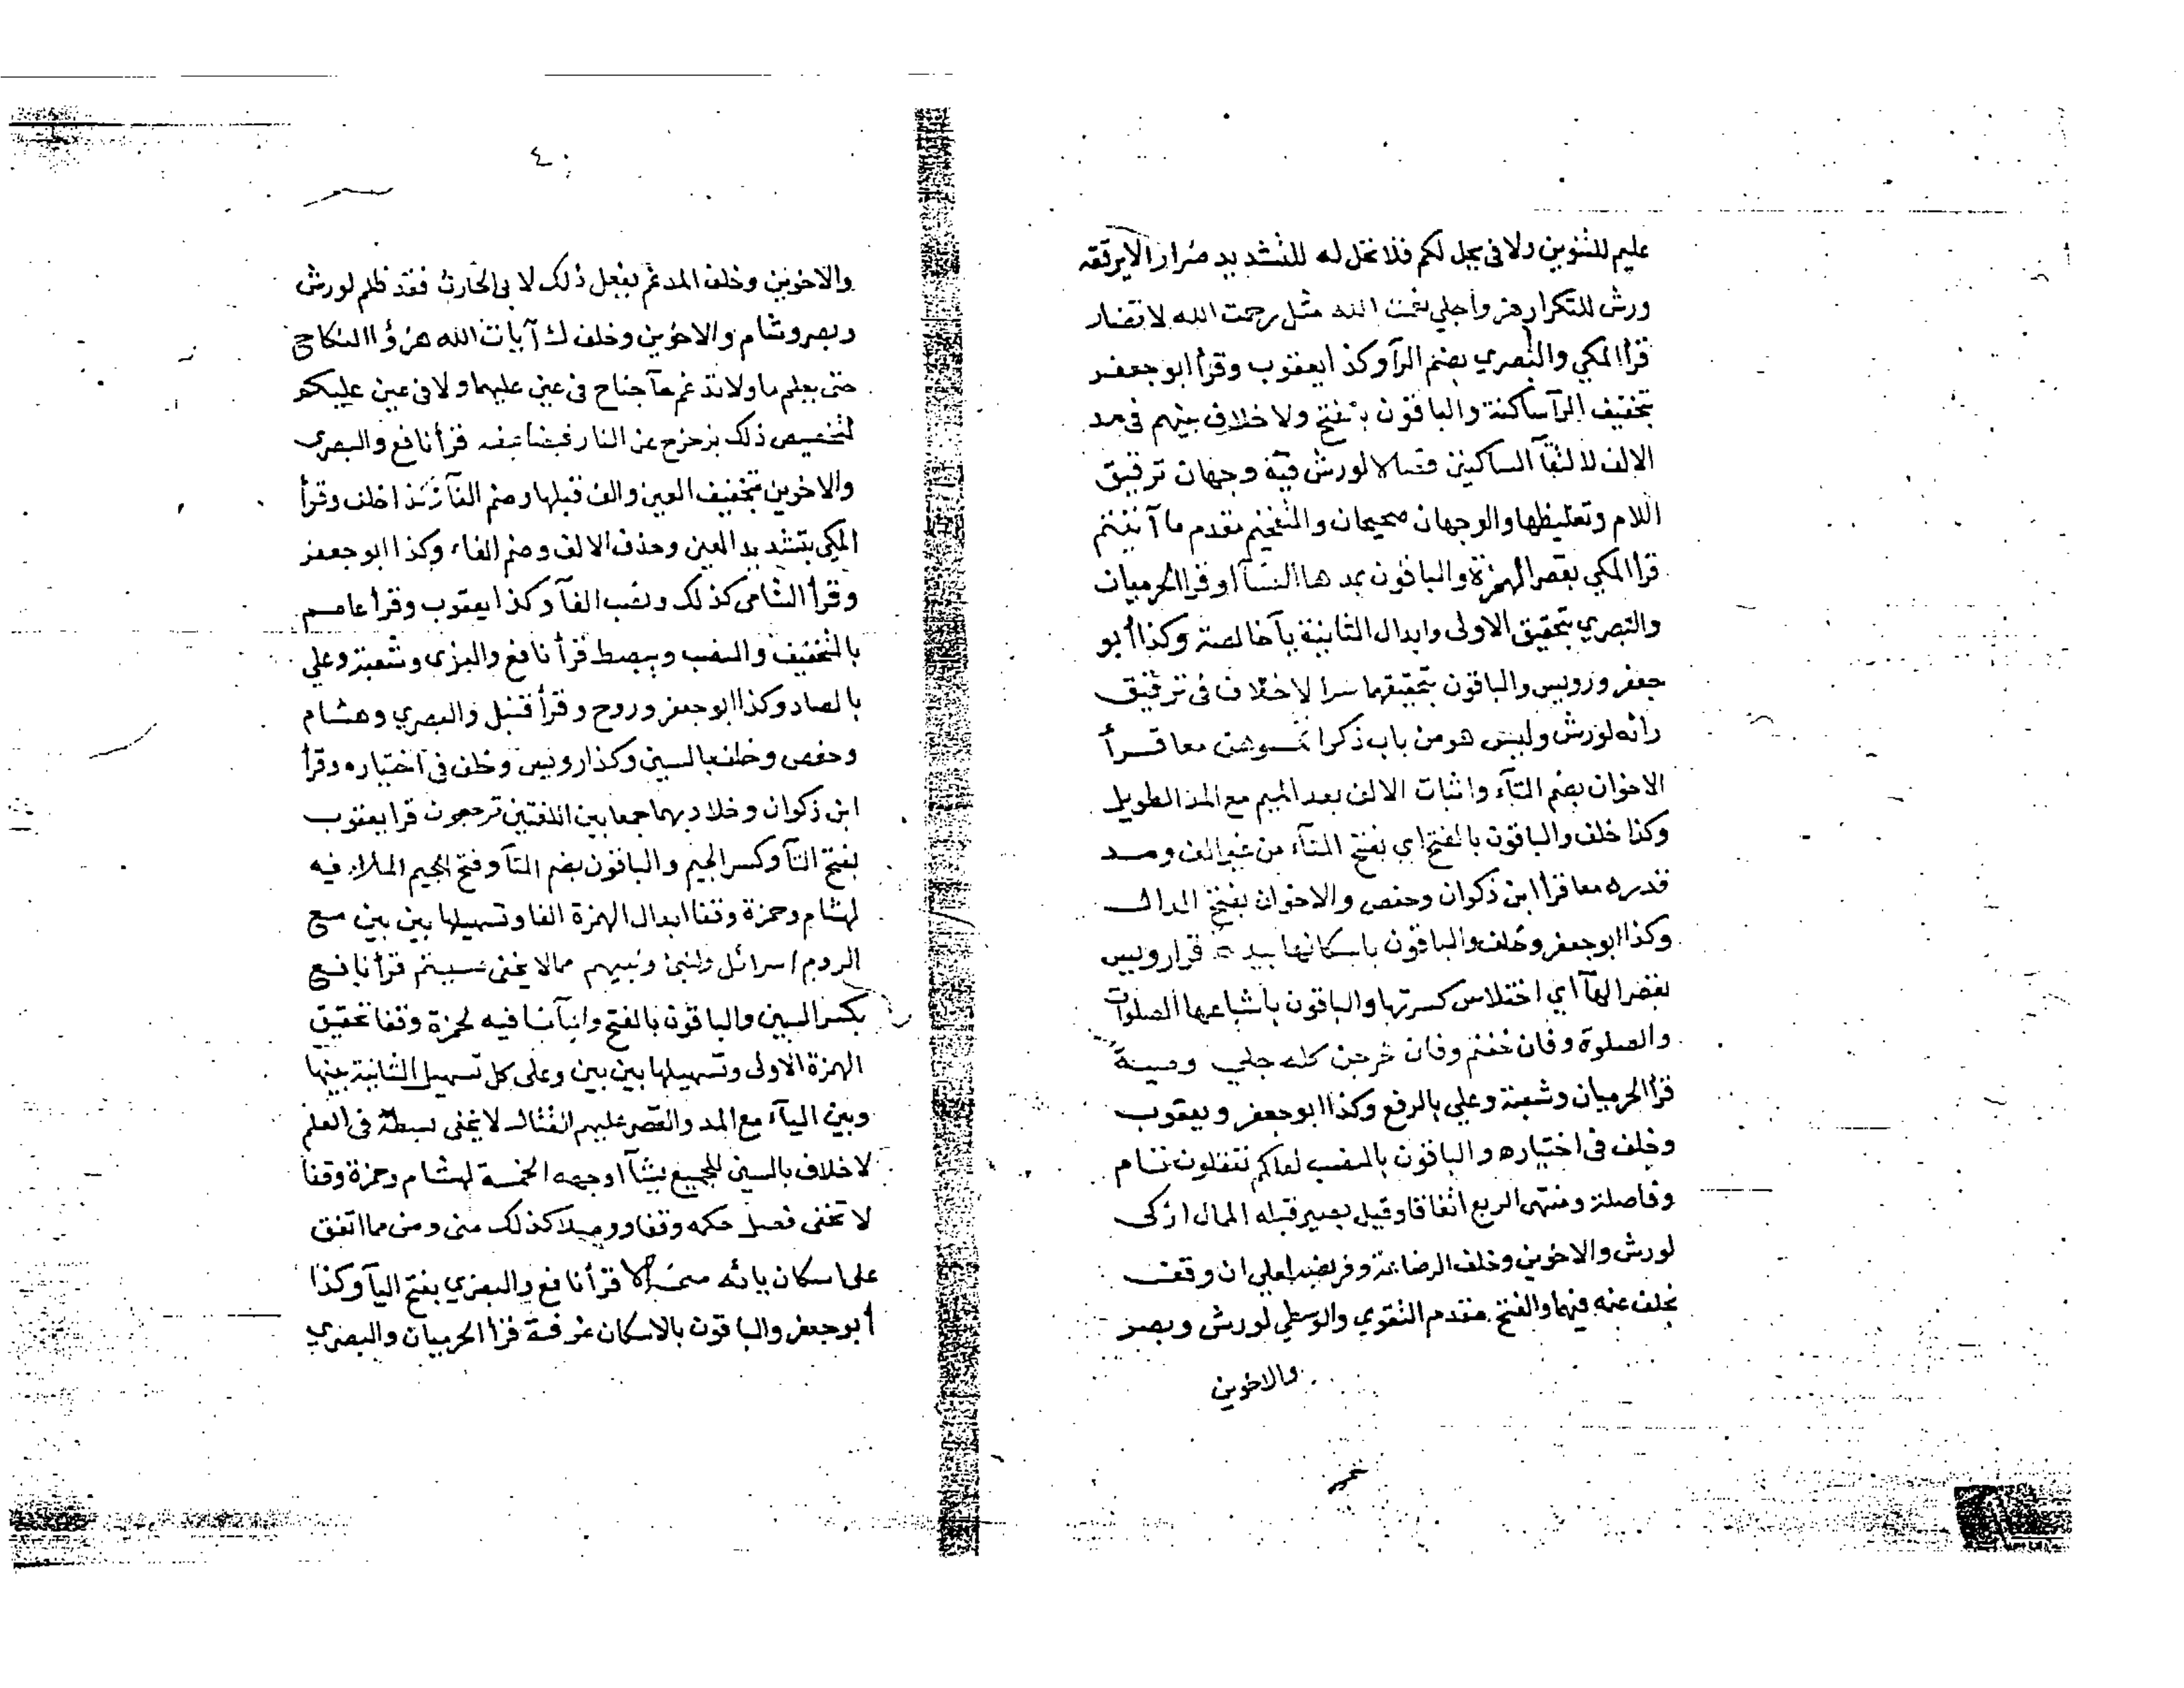 عليم للتنوين ولا فى يحل لكم فلا تحل له للتشديد ضرارا لا يرققه
ورش للتكرار هز واجلي نعمت الله مثل رحمت الله لا تضار
قرأ المكي والبصري بضم الرآ وكذا يعقوب وقرأ ابو جعفر
بتخفيف الرآ ساكنة والباقون بفتح ولا خلاف بينهم فى مد
الالف لالتقآ الساكنين فصالا لورش فيه وجهان ترقيق
اللام وتغليظها والوجهان صحيحان والتفخيم مقدم ما آتيتم
قرا المكي بقصر الهمزة والباقون بمدها النسآ او قرا الحرميان
والبصري بتحقيق الاولى وابدال الثانية يآ خالصة وكذا أبو
جعفر ورويس والباقون بتحقيقهما سرا لا خلاف فى ترقيق
رائه لورش وليس هو من باب ذكرا تمسوهن معا قرأ
الاخوان بضم التآء واثبات الالف بعد الميم مع المد الطويل
وكذا خلف والباقون بالفتح اي بفتح التآء من غير الف ومد
قدره معا قرا ابن ذكوان وحفص والاخوان بفتح الدال
وكذا ابو جعفر وخلف والباقون باسكانها بيده قرا رويس
بقصر الهآ اي اختلاس كسرتها والباقون باشباعها الصلوات
والصلوة وفان خفتم وفان خرجن كله جلي وصية
قرا الحرميان وشعبة وعلي بالرفع وكذا ابو جعفر ويعقوب
وخلف فى اختياره والباقون بالنصب لعلكم تعقلون تام
وفاصلة ومنتهى الربع اتفاقا وقيل بصير قبله الممال ازكى
لورش والاخوين وخلف الرضاعة وفريضة لعلي ان وقف
بخلف عنه فيهما والفتح مقدم التقوي والوسطي لورش وبصر
والاخوين
٤٠
والاخوين وخلف المدغم يفعل ذلك لابى الحارث فقد ظلم لورش
وبصر وشام والاخوين وخلف ك آيات الله هزؤا النكاح
حتى يعلم ما ولا تدغم حآ جناح فى عين عليهما ولا فى عين عليكم
لتخصيص ذلك بزحزح عن النار فيضاعفه قرأ نافع والبصري
والاخوين بتخفيف العين والف قبلها وضم الفآ وكذا خلف وقرأ
المكي بتشديد العين وحذف الالف وضم الفاء وكذا ابو جعفر
وقرأ الشامى كذلك ونصب الفآ وكذا يعقوب وقرأ عاصم
بالتخفيف والنصب ويبصط قرأ نافع والبزى وشعبة وعلي
بالصاد وكذا ابو جعفر وروح وقرأ قنبل والبصري وهشام
وحفص وخلف بالسين وكذا رويس وخلف فى اختياره وقرأ
ابن ذكوان وخلاد بهما جمعا بين اللغتين ترجعون قرا يعقوب
بفتح التآ وكسر الجيم والباقون بضم التآ وفتح الجيم الملاء فيه
لهشام وحمزة وقفا ابدال الهمزة الفا وتسهيلها بين بين مع
الروم اسرائل ولنبئ ونبيهم مما لا يخفى عسيتم قرأ نافع
بكسر السين والباقون بالفتح وابنآئنا فيه لحمزة وقفا تحقيق
الهمزة الاولى وتسهيلها بين بين وعلى كل تسهيل الثانية بينها
وبين اليآء مع المد والقصر عليهم القتال لا يخفى بسطة فى العلم
لا خلاف بالسين للجميع يشآ اوجهه الخمسة لهشام وحمزة وقفا
لا تخفى فصل حكمه وقفا ووصلا كذلك منى ومن مما اتفق
على اسكان يائه منى الا قرأ نافع والبصري بفتح اليآ وكذا
أبو جعفر والباقون بالاسكان غرفة قرا الحرميان والبصري